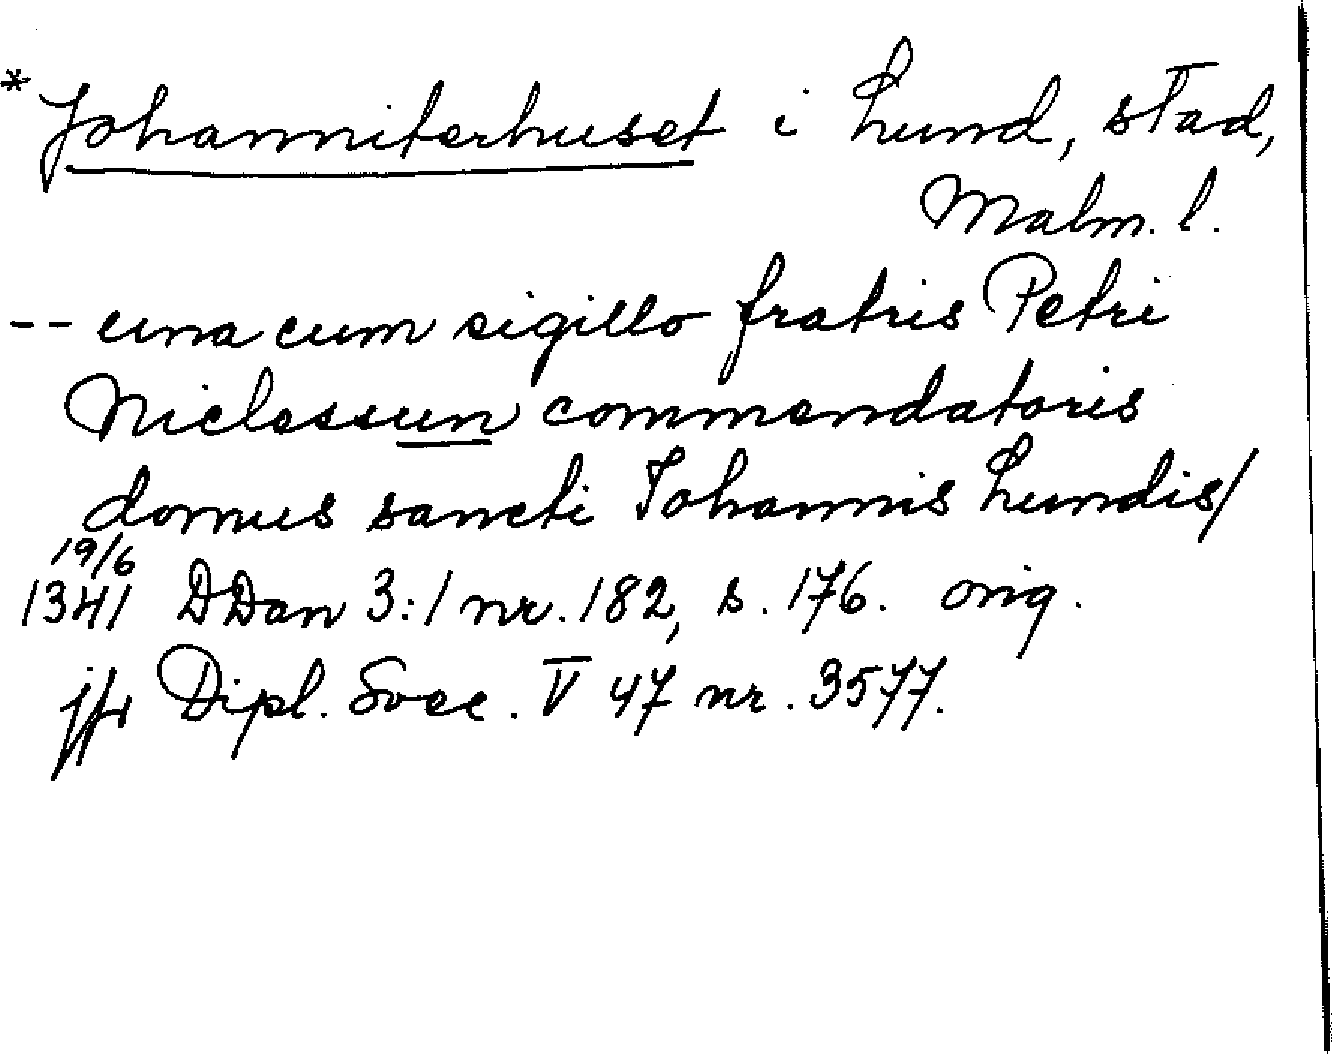 *Johanniterhuset i Lund, stad,
Malm. l.
-- una cum sigillo fratris Petri
Niclessun commendatoris
domus sancti Johannis Lundis/
19/6
1341 DDan 3:1 nr. 182, s. 176. orig.
jfr Dipl. Svec. V 47 nr. 3577.